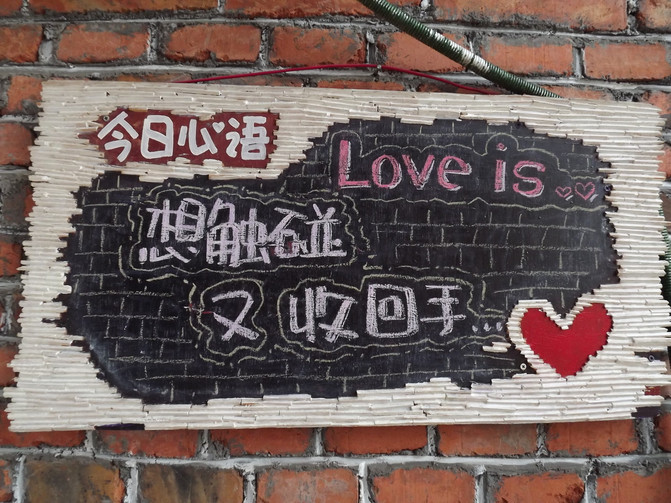 今日心语
Love is...
想触碰
又收回手...